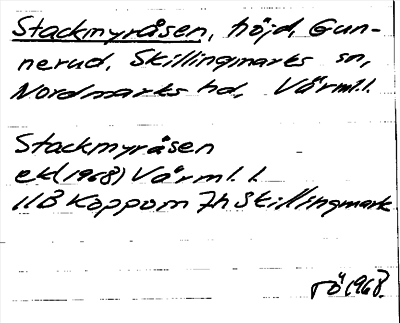 Stackmyråsen, höjd, Gun-
nerud, Skillingmarks sn,
Nordmarks hd, Värml.l.
Stackmyråsen
ek(1968) Värml. l.
11B Koppom 7h Skillingmark
rö 1968.